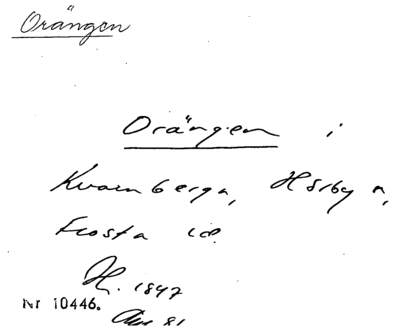 Orängen
Orängen i
Kvarnberga, Hörby sn,
Frosta hd.
H. 1847
Nr 10446.
81